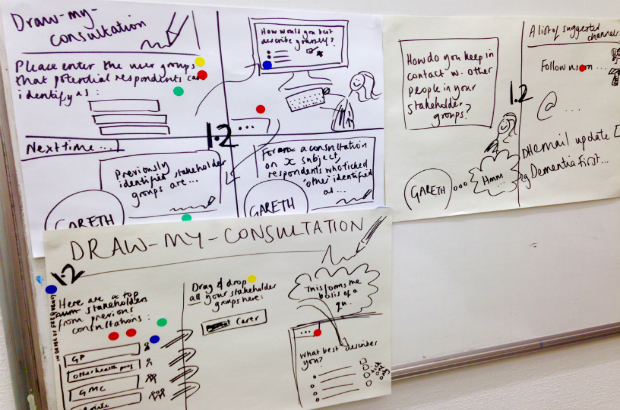 Draw-my-
consultation
Please enter the user groups
that potential respondents can
identify as:
How would you best
describe yourself?
Next time...
1.2
Previously
identified stakeholder
groups are...
GARETH
a consultation
on x subject,
respondents who ticked
'other' identified
as...
GARETH
How do you keep in
contact w. other
people in your
stakeholder
groups?
GARETH
Hmm
A list of suggested
channels
Follow us on...
1.2
@...
email update
eg Dementia First...
DRAW-MY-CONSULTATION
1.2
Here are a top
stakeholders
from previous
consultations:
GP
other health prof
GMC
Drag & drop
all your stakeholder
groups here:
Carer
This forms the
basis of a
qu.
What best describes
you?